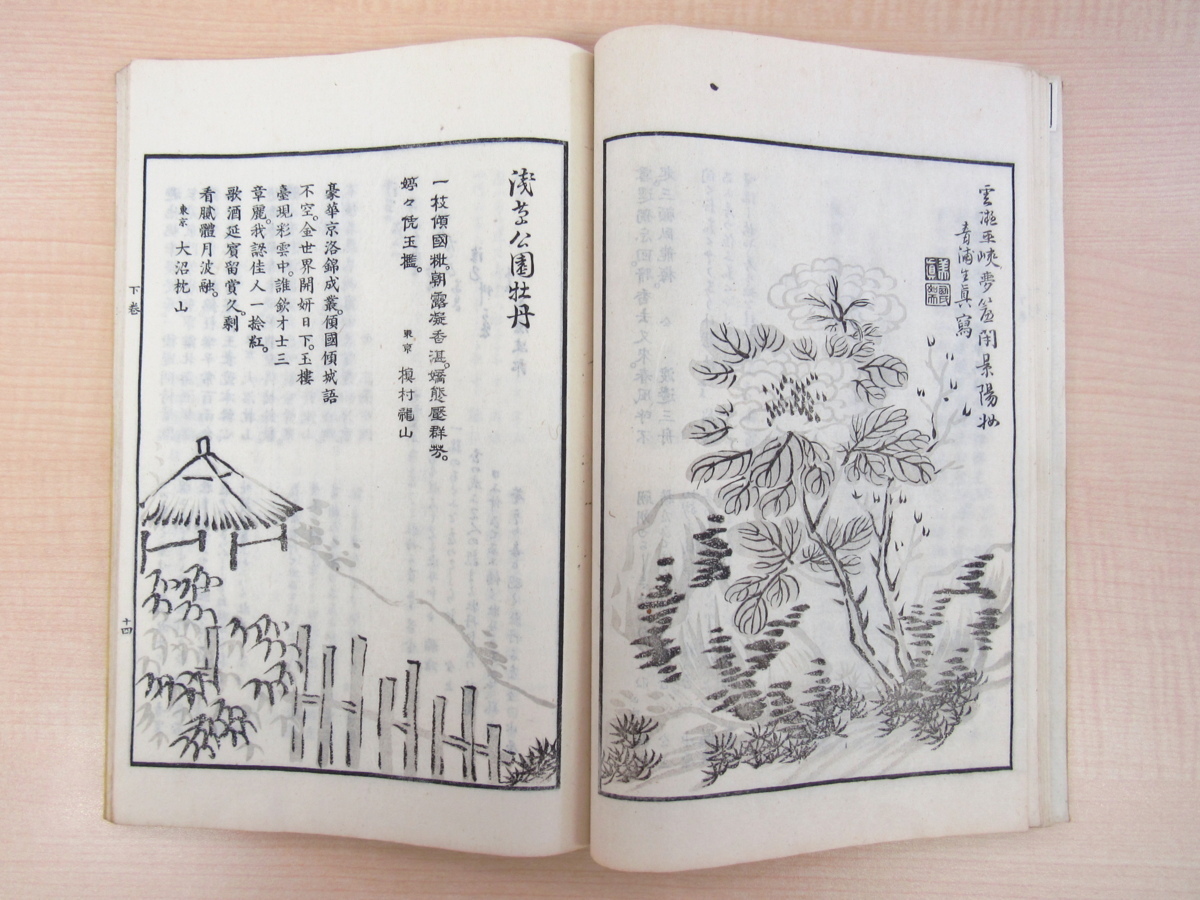 雲凝巫峽夢簾開景陽妝
青浦生真寫
淺草公園牡丹
一枝傾國粧。朝露凝香濕。嬌態壓群芳。
婷々倚玉欄。
東京 槙村龍山
豪華京洛錦成叢。傾國傾城語
不空。金世界開妍日下。玉樓
臺現彩雲中。誰欽才士三
章麗。我認佳人一捻紅。
歌酒延賓留賞久。剩
看膩體月波融。
東京 大沼枕山
下卷
十四